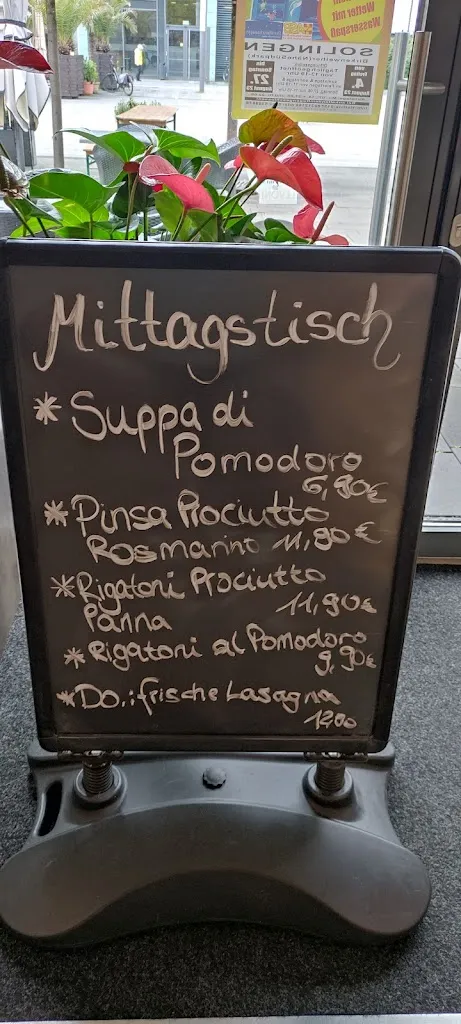 Wetter mit
Wasserspaß
SOLINGEN
4.
27.
Mittagstisch
* Suppa di
Pomodoro
6,90€
* Pinsa Prociutto
Rosmarino 11,90€
* Rigatoni Prociutto
Panna 11,90€
* Rigatoni al Pomodoro
9,90€
* Do.: frische Lasagna
12,00